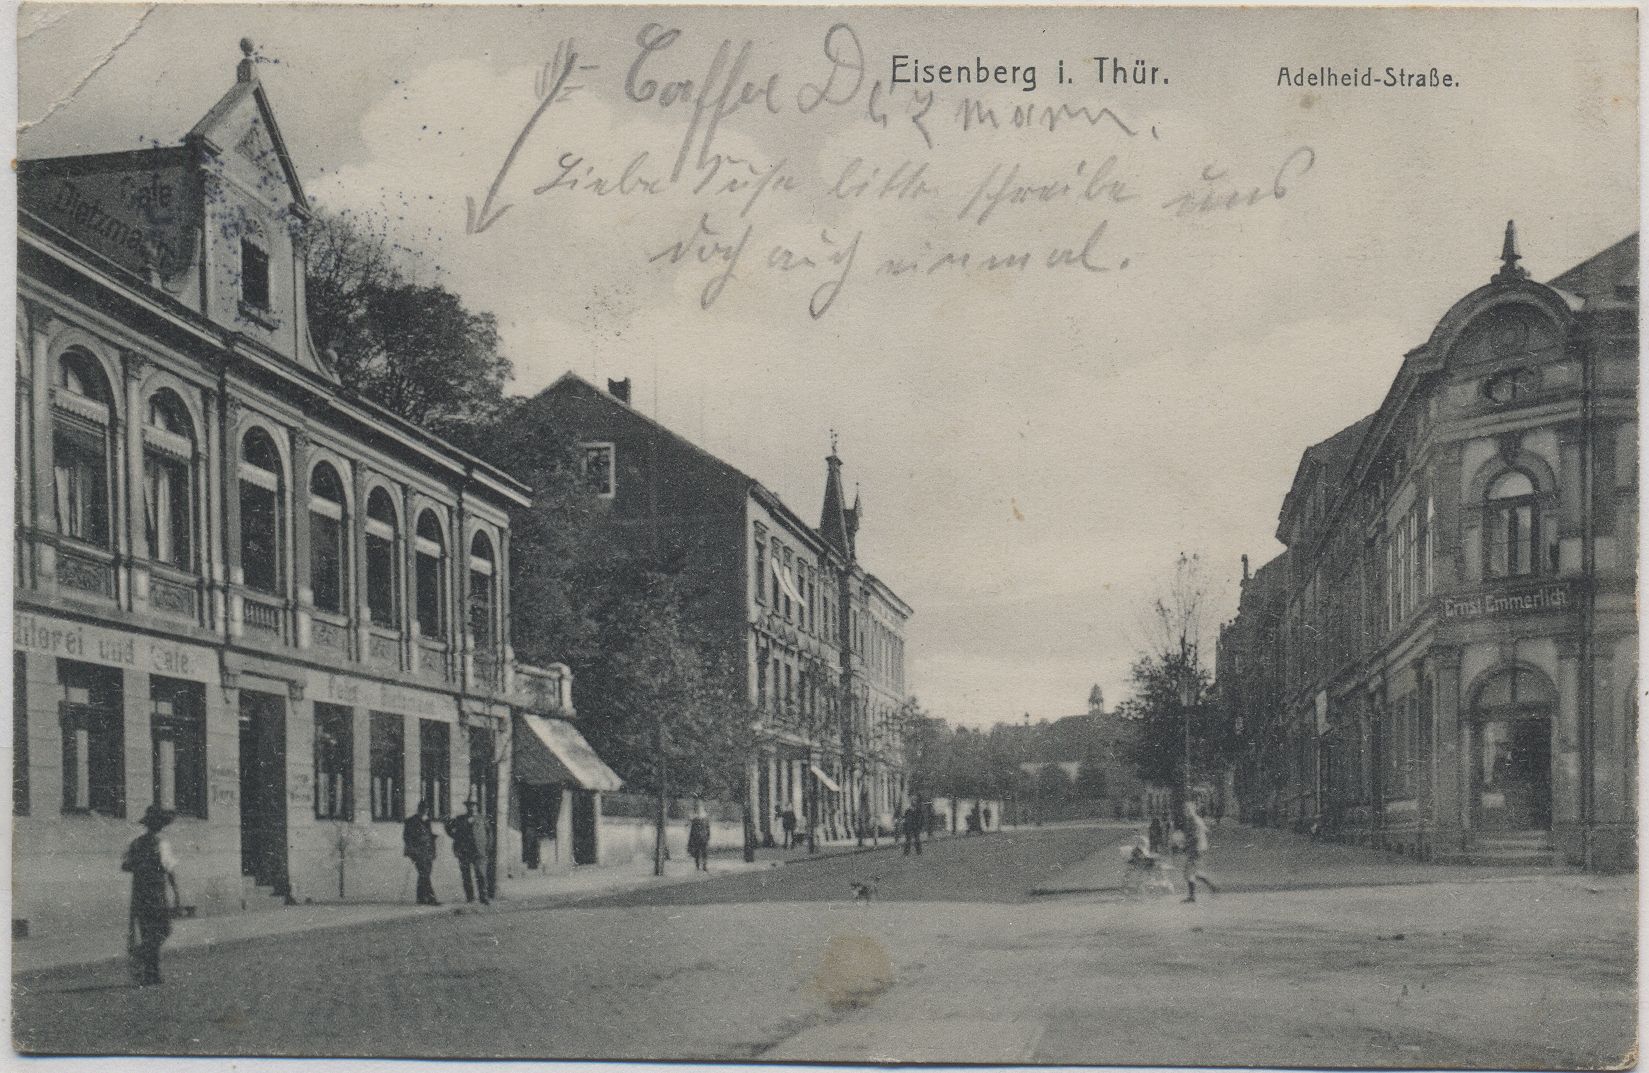 Eisenberg i. Thür.
Adelheid-Straße.
Caffee Ditzmann.
Liebe Suse bitte schreibe uns
doch auch einmal.
Cafe
Dietzmann
ditorei und Cafe.
Ernst Emmerlich